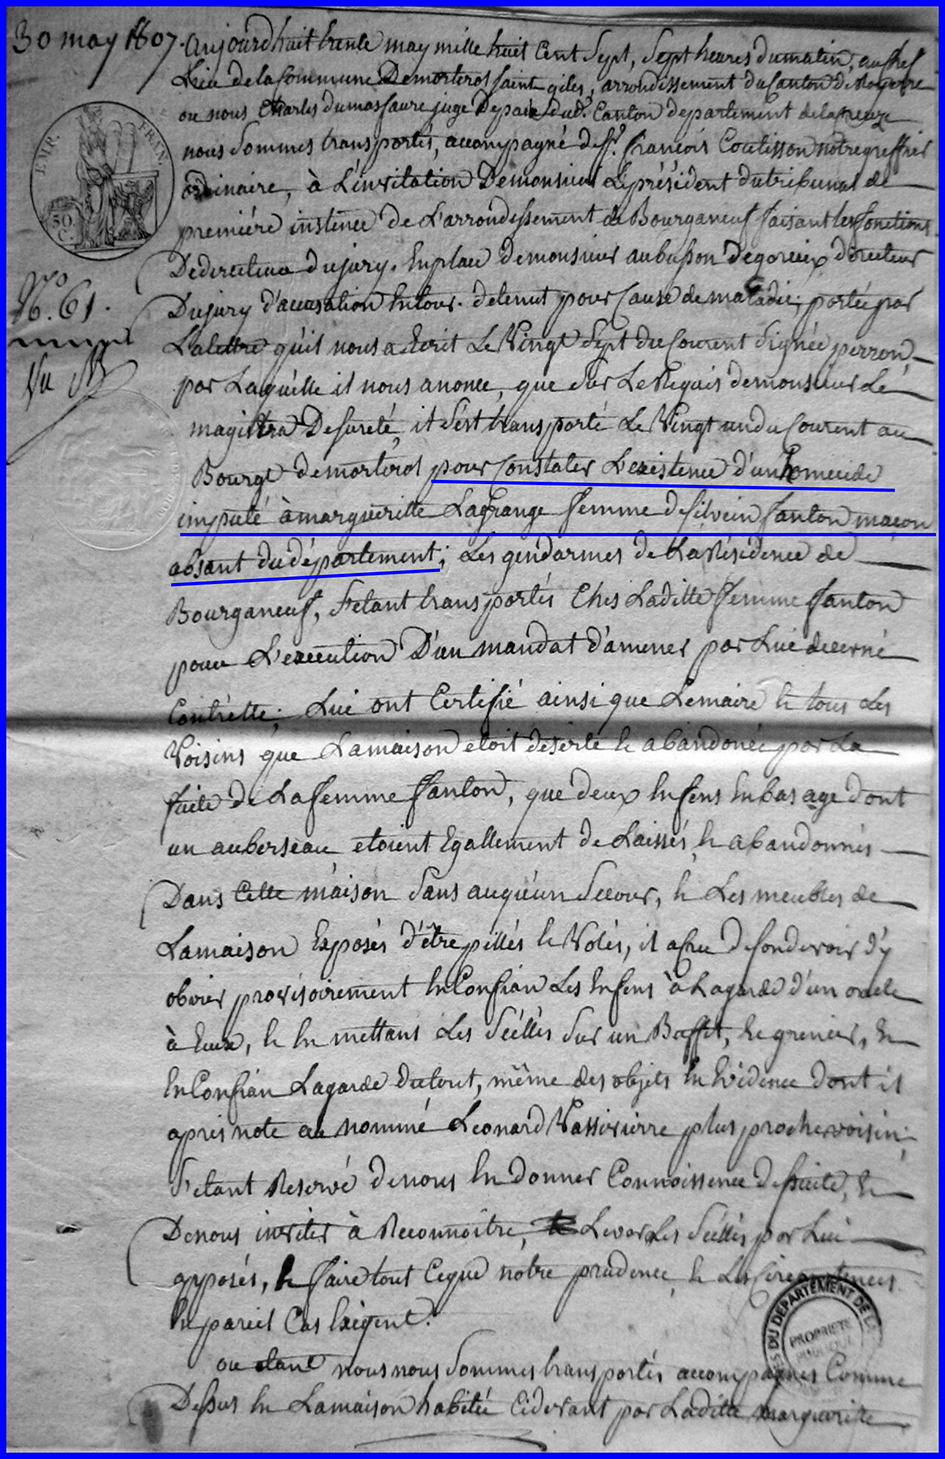 30 may 1807.
Aujourd'huit trente may mille huit Cent Sept, Sept heures dumatin, au chef
Lieu de la Commune Demorterol saint giles, arrondissement du Canton de Royerre
ou nous Charles dumas faure juge Depaix dud. Canton departement delacreuze
nous Sommes transportés, accompagné de Sr. francois Coutisson notre greffier
ordinaire, à L'invitation Demonsieur Leprésident dutribunal de
premiére instence de L'arrondissement de Bourganeuf faisant les fonctions
Dedirecteur dujury. En place demonsieur aubusson Degoreix directeur
Dujury d'accusation detenut pour Cause de maladie, portée par
La lettre qu'il nous a Ecrit Le Vingt Sept du Courent Signée perron
par Laquélle il nous anonce, que Sur Le Requis demonsieur Le
magistra De sureté, it S'est transporté Le Vingt undu Courent au
Bourg demorterol pour Constater L'existence d'un homecide
imputé àmargueritte Lagrange femme de Silvein fanton maçon
absant du département; Les gendarmes de La Résidence de
Bourganeuf, S'etant transportés Chés Laditte femme fanton
pour L'execution D'un mandat d'amener par Lui décerné
Contrélle; Lui ont Certifié ainsi que Lemaire & tous Les
Voisins que Lamaison etoit déserte & abandonée par La
fuite de La femme fanton, que deux Enfens Enbas age dont
un auberseau, etoient Egallement de Laissés, & abandonnés
Dans Cette maison Sans auqu'un Secour, & Les meubles de
Lamaison Exposés d'être pillés & Volés, il acru de son devoir d'y
obvier provisoirement En Confian Les Enfens à La garde d'un oncle
à Eux, & En mettans Les Scéllés Sur un Buffet, Le grenier, &
En Confian La garde du tout, même des objets En Evidence dont il
apris note au nommé Leonard Vassivierre plus proche voisin;
S'etant Reservé denous En donner Connoissence de Suite, &
Denous inviter à Reconnoitre, Lever Les Scéllés par Lui
apposés, & faire tout Ceque notre prudence, & Les Circonstences
En pareil Cas Exigent.
ou etant nous nous Sommes transportés accompagnés Comme
Dessus En Lamaison habitée Cidevant par Laditte margueritte
No. 61.
Vu
EMP. FRAN.
50 C.
ES DU DEPARTEMENT DE LA
PROPRIETE
PUBLIQUE